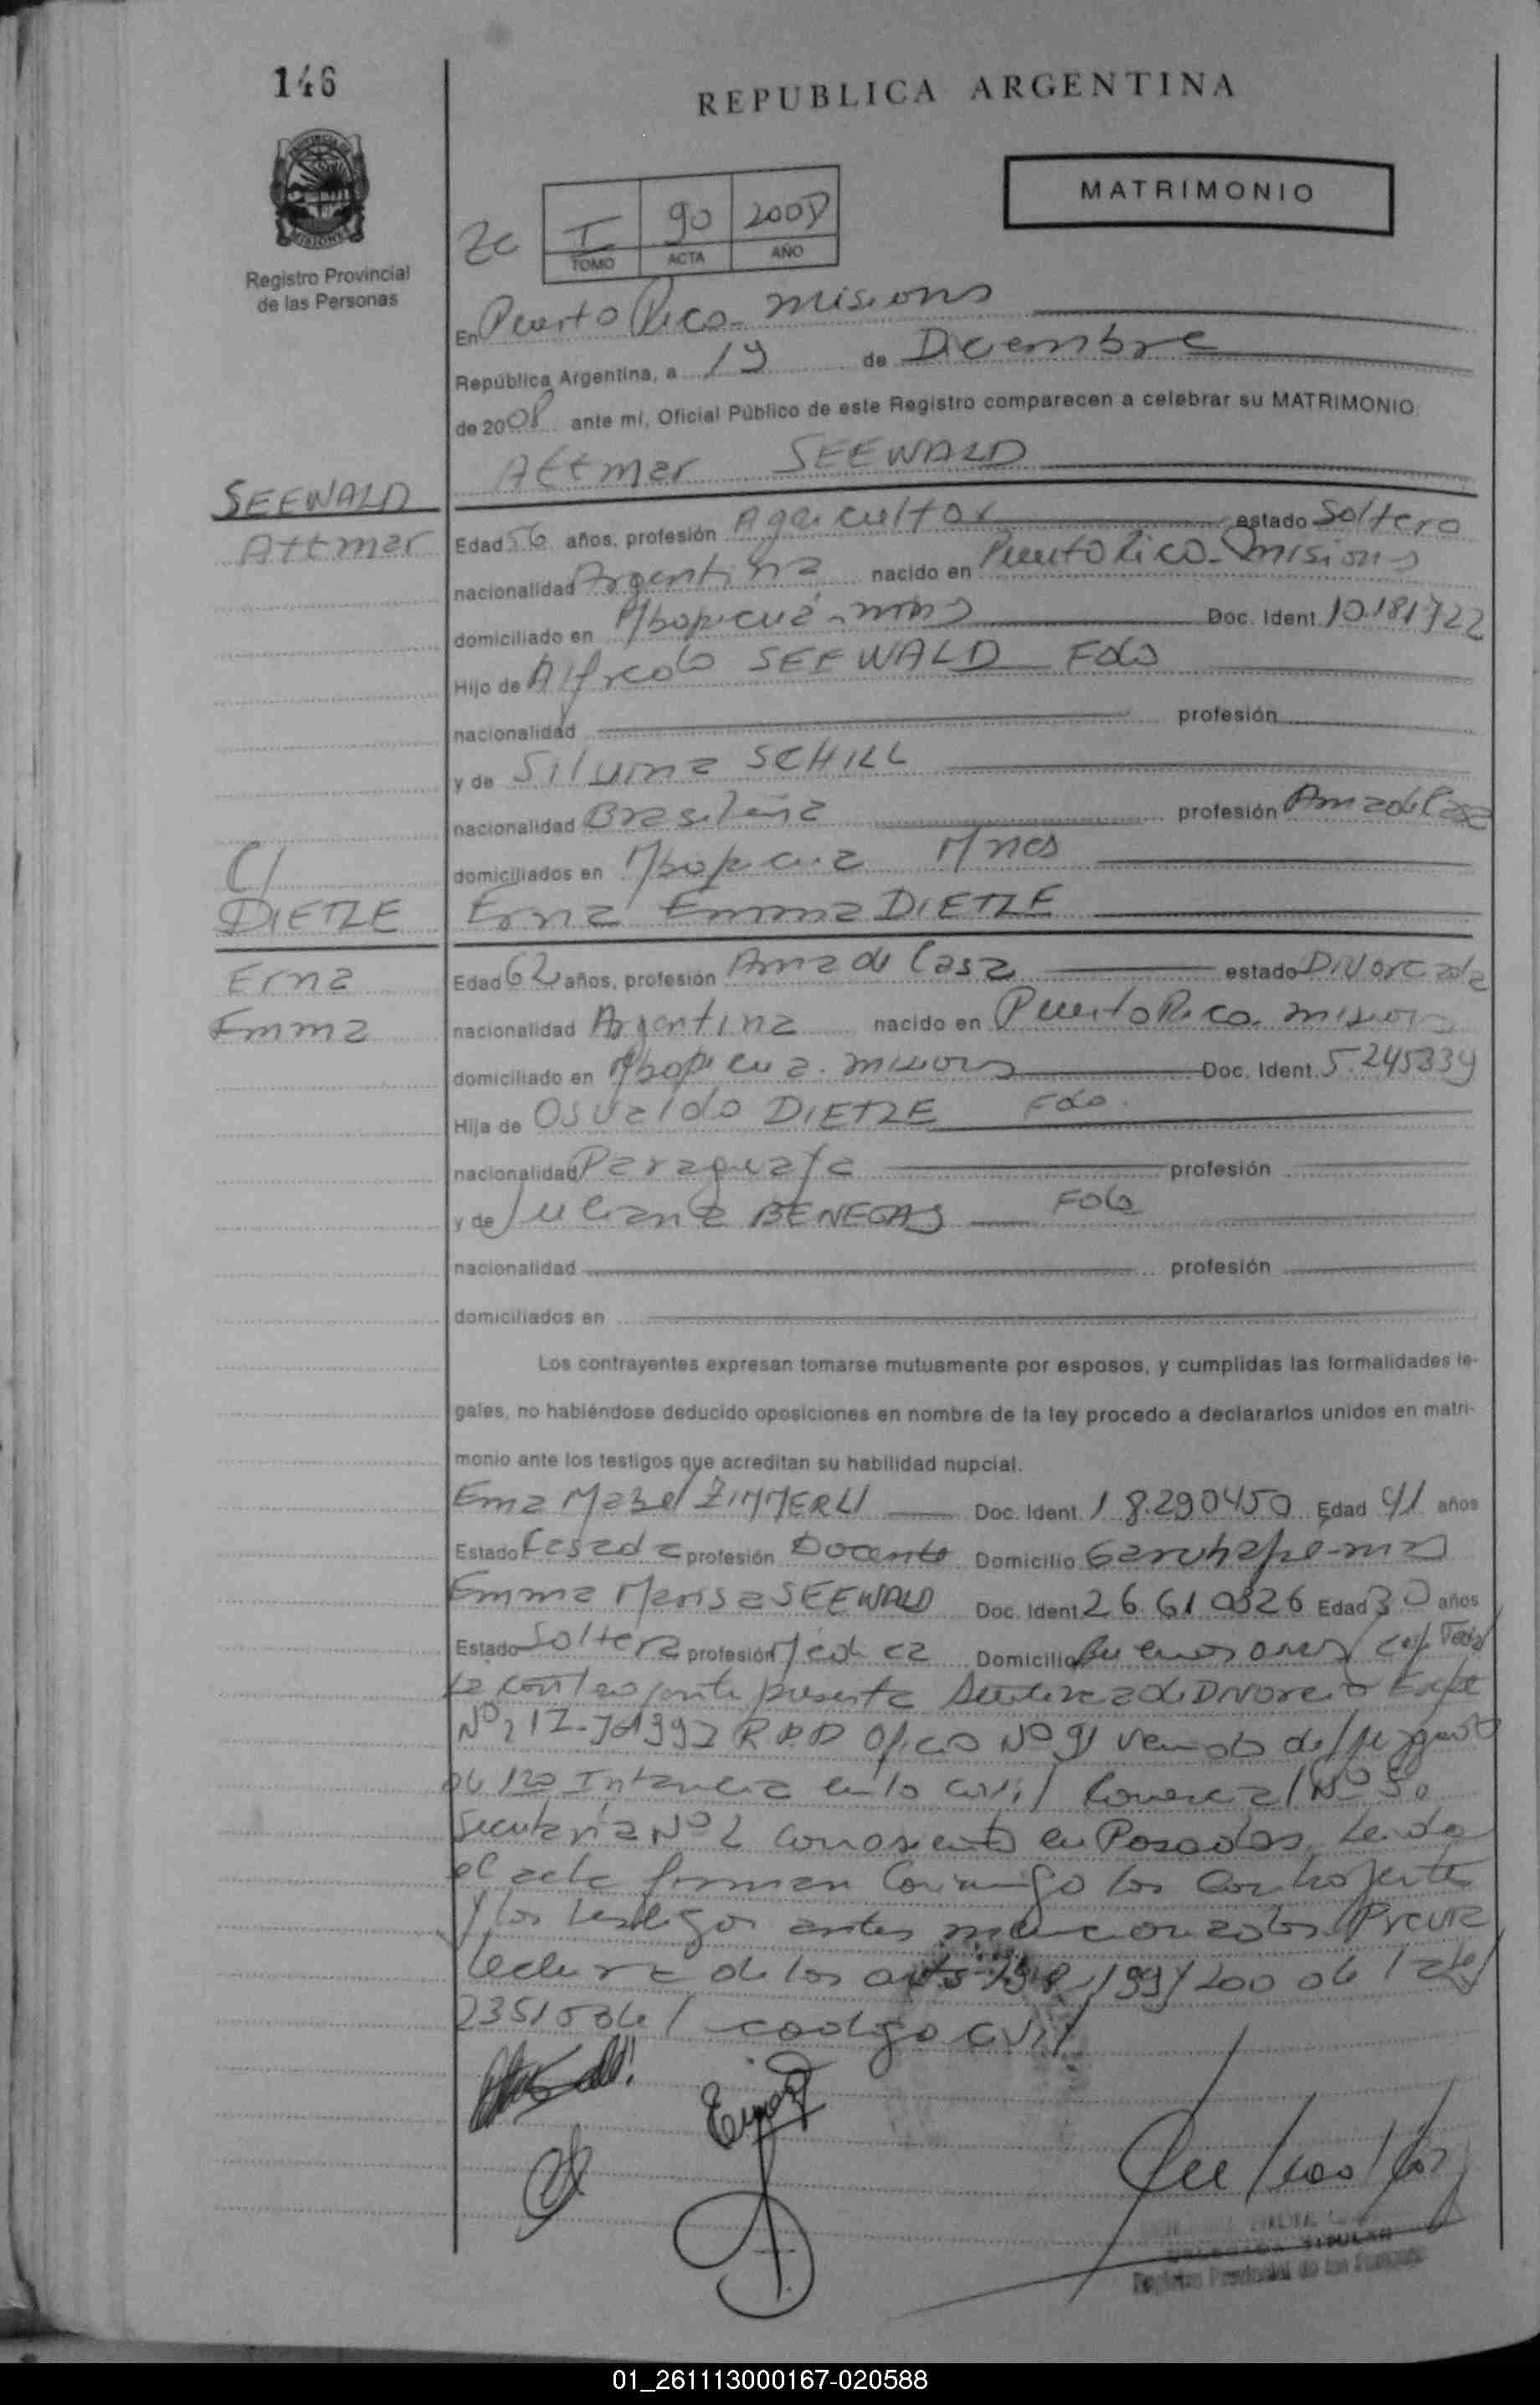 146
REPUBLICA ARGENTINA
MATRIMONIO
PROVINCIA DE
MISIONES
Registro Provincial
de las Personas
2c
I 90 2008
TOMO ACTA AÑO
En Puerto Rico - Misiones
República Argentina, a 19 de Diciembre
de 2008 ante mí, Oficial Público de este Registro comparecen a celebrar su MATRIMONIO:
Attmar SEEWALD
SEEWALD
Attmar
Edad 56 años, profesión Agricultor estado Soltero
nacionalidad Argentina nacido en Puerto Rico - Misiones
domiciliado en Mbopicuá - mns Doc. Ident. 10.181722
Hijo de Alfredo SEEWALD Fdo
nacionalidad profesión
y de Silvina SCHILL
nacionalidad Brasileña profesión Ama de Casa
domiciliados en Mbopicua Mnes
C/
DIETZE
Erna
Emma
Erna Emma DIETZE
Edad 62 años, profesión Ama de Casa estado Divorciada
nacionalidad Argentina nacido en Puerto Rico. misiones
domiciliado en Mbopicua. misiones Doc. Ident. 5.245339
Hija de Osvaldo DIETZE Fdo.
nacionalidad Paraguaya profesión
y de Juliana BENEGAS Fda
nacionalidad profesión
domiciliados en
Los contrayentes expresan tomarse mutuamente por esposos, y cumplidas las formalidades le-
gales, no habiéndose deducido oposiciones en nombre de la ley procedo a declararlos unidos en matri-
monio ante los testigos que acreditan su habilidad nupcial.
Mabel ZIMMERLI Doc. Ident. 18.290450 Edad 41 años
Estado Casada profesión Docente Domicilio Garuhape-mns
Emma Marisa SEEWALD Doc. Ident. 26 610826 Edad 30 años
Estado Soltera profesión Médica Domicilio Buenos Aires
La contrayente presenta Sentencia de Divorcio Expte
Oficio Nº 91 del juzgado
de 1ra Instancia en lo Civil Comercial Nº 5.
Secretaría Nº 2 con asiento en Posadas. Leida
el acta firman conmigo los contrayente
y los testigos antes mencionados. Previa
lectura de los arts 198/199/200 de la ley
23515 del codigo civil
TITULAR
Registro Provincial de las Personas
01_261113000167-020588